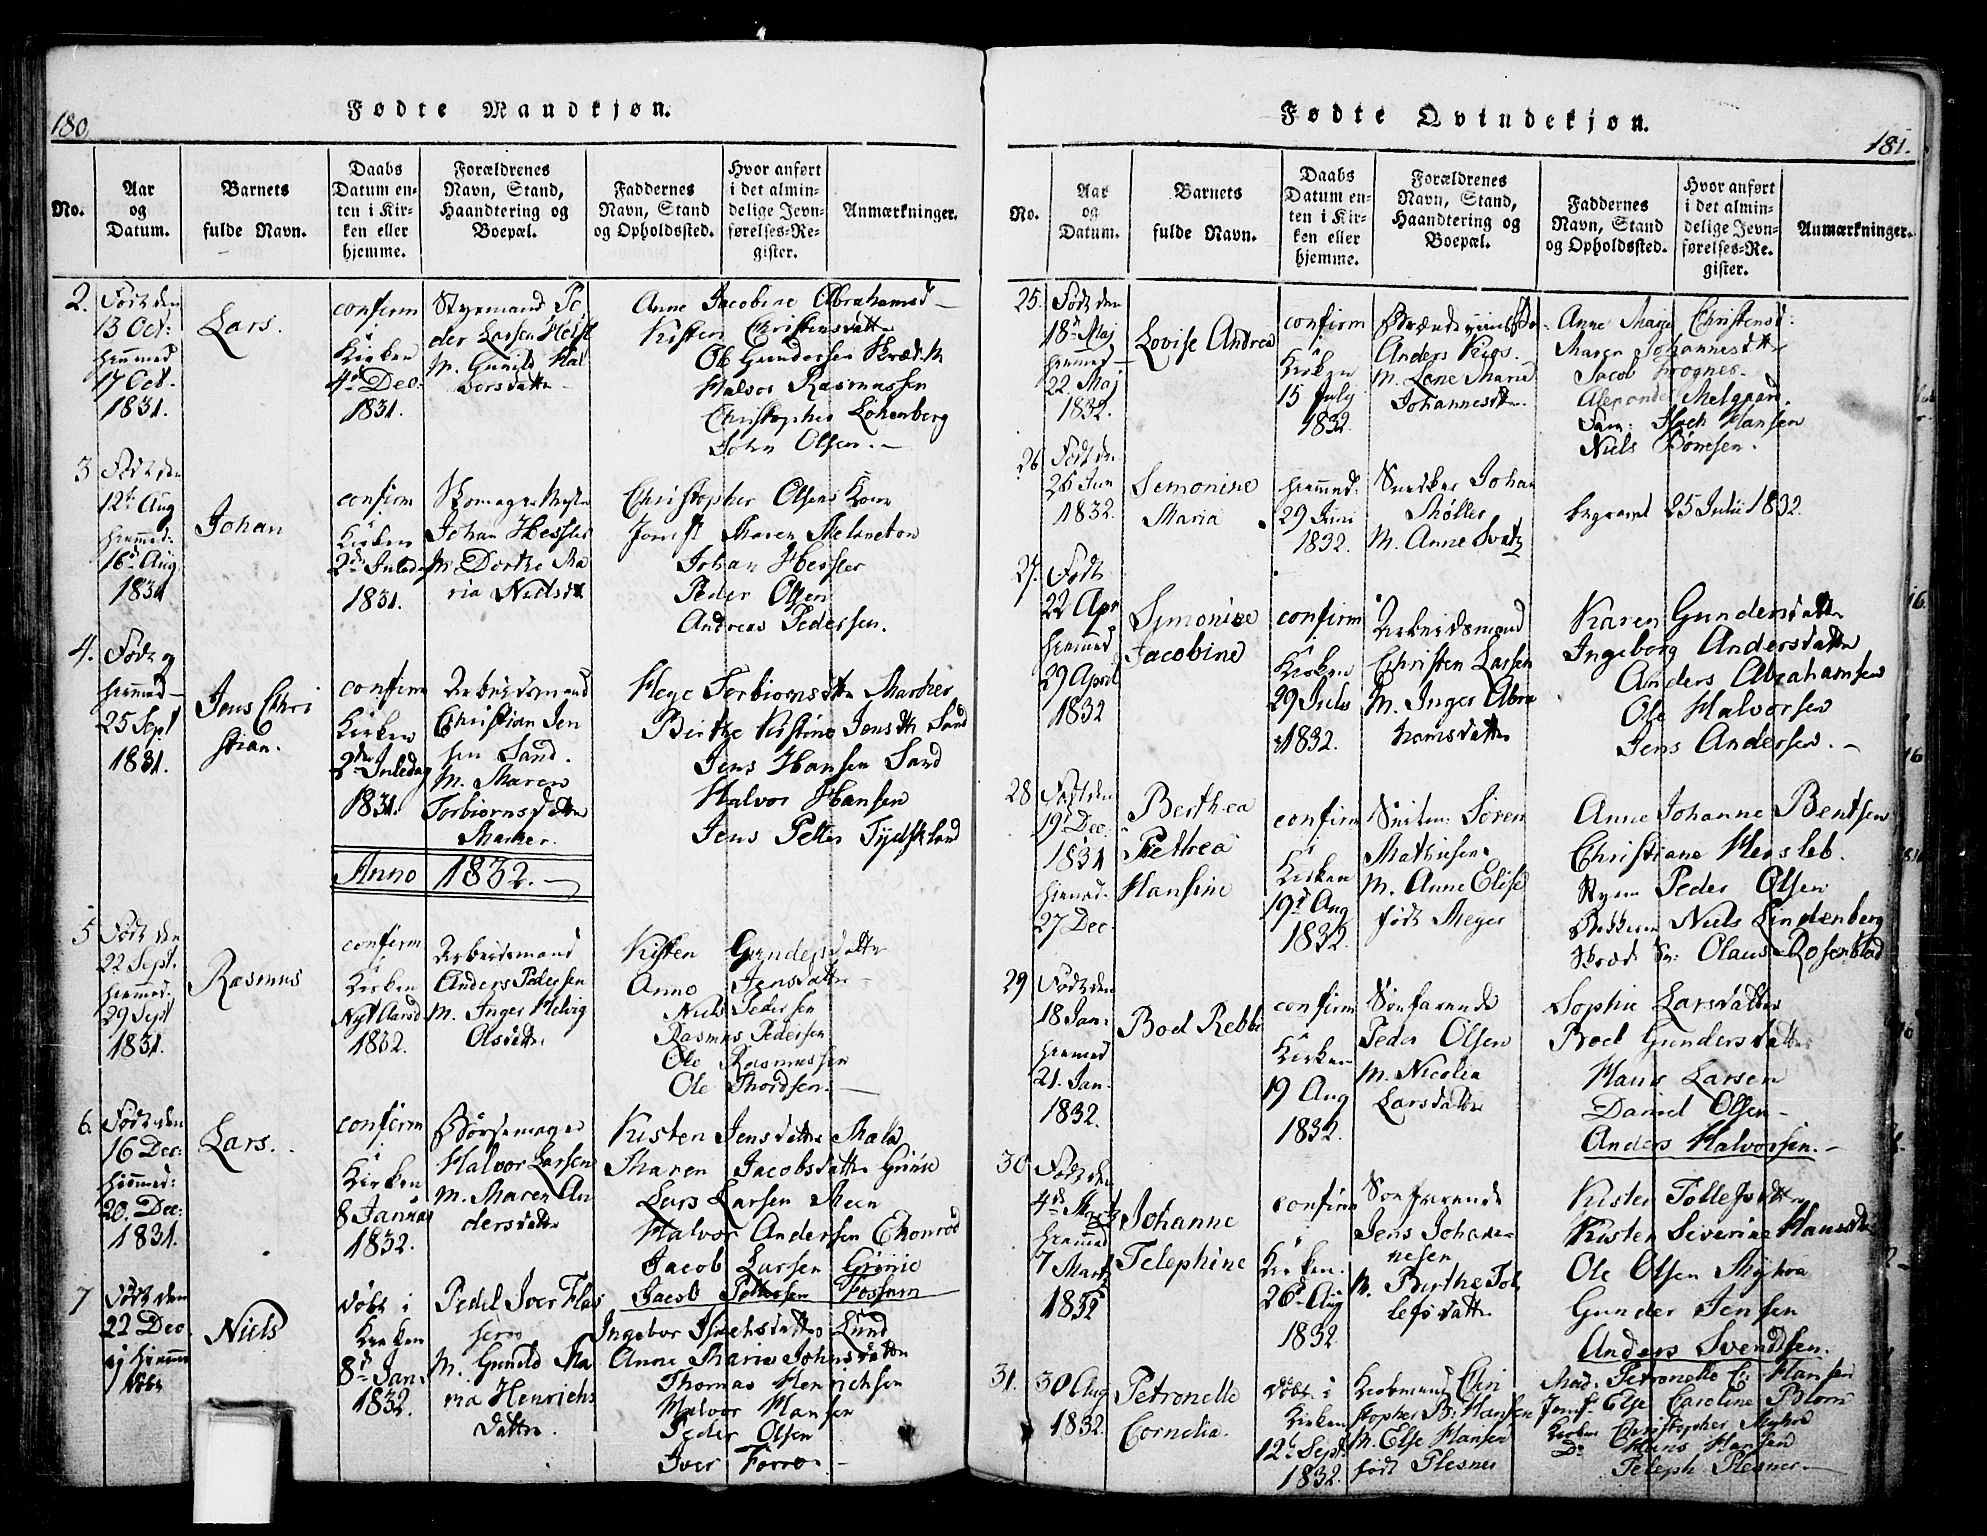 180.
Fødte Mandkjøn.
No.
Aar
og
Datum.
Barnets
fulde Navn.
Daabs
Datum en-
ten i Kir-
ken eller
hjemme.
Forældrenes
Navn, Stand,
Haandtering og
Boepæl.
Faddernes
Navn, Stand
og Opholdssted.
Hvor anført
i det almin-
delige Jevn-
førelses-Re-
gister.
Anmærkninger.
2.
Født den
13 Oct:
hjemmed
17 Oct.
1831.
Lars.
confirm
i
Kirken
4de Dec:
1831.
Styrmand Pe
der Larsen Heist
M. Gunild Hal
vorsdatter
Anne Jacobine Abrahamsd
Kisten Christensdatter
Ole Gundersen
Halvor Rasmussen
Christopher Lökenberg
John Olsen.
3
Født den
12te Aug
hjemmed.
16d Aug
1831
Johan
confirm
i
Kirken
2d Juledag
1831.
Johan Hessler
M. Dorthe Ma
ria Nielsdtr
Christopher Olsens Kone
Jomf. Maren Melancton
Johan Hessler
Peder Olsen
Andreas Pedersen.
4.
Født og
hjemmed
25 Sept
1831.
Jens Chri
stian.
confirm
i
Kirken
2den Juledag
1831.
Arbeidsmand
Christian Jen
sen Sand.
M. Maren
Torbiørnsdatter
Marker.
Hege Torbiornsdtr Marker
Birthe Kistine Jensdtr Sand
Jens Hansen Sand
Halvor Hansen
Jens Petter Tydskland
Anno 1832.
5
Født den
22 Sept.
hjemmed.
29 Sept
1831.
Rasmus
confirm
i
Kirken
Nytaarsd
1832.
Arbeidsmand
Anders Pedersen
M. Inger Helvig
Olsdatter
Kisten Gundersdatter
Anne Jensdatter
Niels Pedersen
Rasmus Pedersen
Ole Rasmussen
Ole Thordsen.
6.
Født den
16 Dec:
hjemmed:
20. Dec:
1831.
Lars.
confirm
i
Kirken
8 Januar
1832.
Børsemager
Halvor Larsen
M. Maren An
dersdatter
Kisten Jensdatter
Maren Jacobsdatter Grinie
Lars Larsen Meen
Halvor Andersen
Jacob Larsen Grinie
Jacob Pettersen Fossum
7
Født den
22 Dec.
ej hjemme
døbt
Niels
døbt i
Kirken
8d Jan.
1832.
Pedel Iver
M. Gunild Ma
ria Henrichs
datter.
Ingebor Isachsdatter Lund
Anne Maria Johnsdatter
Thomas Henrichsen
Halvor Hansen
Peder Olsen
Iver
181.
Fødte Qvindekjøn.
No.
Aar
og
Datum.
Barnets
fulde Navn.
Daabs
Datum en-
ten i Kir-
ken eller
hjemme.
Forældrenes
Navn, Stand,
Haandtering og
Boepæl.
Faddernes
Navn, Stand
og Opholdssted.
Hvor anført
i det almin-
delige Jevn-
førelses-Re-
gister.
Anmærkninger.
25.
Født den
18d Maj
hjemmed
22 Maj
1832.
Lovise Andrea
confirm
i
Kirken
15 July
1832
Anders
M. Lene Marie
Johannesdtr.
Anne Marje Christensd:
Maren Johannesdtr
Jacob Frognes.
Alexander Melgaard.
Isach Hansen
Niels
26
Født den
25 Jun
1832.
Semonine
Maria
hjemmed.
29 Juni
1832.
Snedker Johan
Møller
M. Anne
begravet 25 Julii 1832
27.
Født
22 Apr
hjemmed
29 April
1832
Symonine
Jacobine
confirm
i
Kirken
29 Julii
1832.
Arbeidsmand
Christen Larsen
M. Inger Abra
hamsdatter
Karen Gundersdatter
Ingeborg Andersdatter
Anders Abrahamsen
Ole Halvorsen
Jens Andersen.
28
Født den
19d Dec.
1831
hjemmed.
27 Dec.
Berthea
Pethrea
Hansine
confirm
i
Kirken
19d Aug
1832.
Søren
Mathiesen
M. Anne Elise
født Meyer
Anne Johanne Bentsen
Christiane Hersleb.
Styrm Peder Olsen
Niels Lindenberg
Olaus Rosenblad
29
Født den
18 Jan.
hjemmed
21. Jan.
1832.
Boel Rebb
confirm
i
Kirken
19 Aug
1832.
Søefarende
Peder Olsen
M. Nicolea
Larsdatter
Sophie Larsdatter
Boel Gundersdatter
Hans Larsen
Daniel Olsen
Anders Halvorsen.
30
Født den
4de Marts
hjemmed
7 Marts
1832
Johanne
Telephine
confirm
i
Kirken.
26d Aug
1832
Søefarende
Jens Johan-
nesen
M. Berthe Tol
lefsdatter
Kisten Tollefsdatter
Kisten Siverine Hansdtr
Ole Olsen Myhra
Gunder Jensen
Anders Svendsen.
31.
30 Aug
1832.
Petronelle
Cornelia.
døbt i
Kirken
12te Sept.
1832.
Kiøbmand Chri
stopher B: Hansen
M. Else Hansen
født Plesner
Mad. Petronelle C: Hansen
Jomf. Else Caroline Blom
Christopher Myhre
Do Hans Hansen
Teleph Plesner.